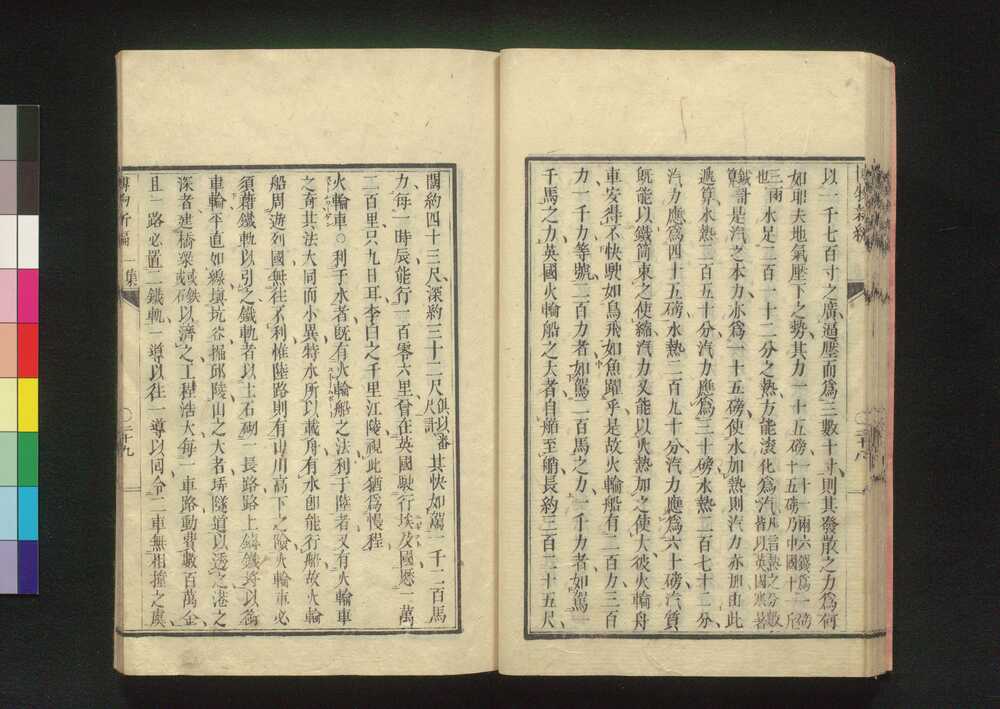 以一千七百寸之廣逼壓而爲三數十寸則其發散之力爲何
如耶夫地氣壓下之勢其力一十五磅一十一兩六錢爲一磅十五磅乃中國十一斤
三兩也水足二百一十二分之熱方能滾化爲汽凡言熱之分數皆用英國寒暑
鍼計算是汽之本力亦爲一十五磅使水加熱則汽力亦加由此
遞算水熱二百五十分汽力應爲三十磅水熱二百七十二分
汽力應爲四十五磅水熱二百九十分汽力應爲六十磅汽質
旣能以鐵筒束之使縮汽力又能以火熱加之使大彼火輪舟
車安得不快駛如鳥飛如魚躍乎是故火輪船有二百力三百
力一千力等號二百力者如駕二百馬之力一千力者如駕一
千馬之力英國火輪船之大者自船至艄長約三百二十五尺
闊約四十三尺深約三十二尺俱以番尺計其快如駕一千二百馬
力每一時辰能行一百零六里曾在英國駛行埃及國歷一萬
二百里只九日耳李白之千里江陵視此猶爲慢程
火輪車○利于水者旣有火輪船之法利于陸者又有火輪車
之奇其法大同而小異特水所以載舟有水卽能行船故火輪
船周遊列國無往不利惟陸路則有山川高下之險火輪車必
須藉鐵軌以引之鐵軌者以土石砌一長路路上鑄鐵條以銜
車輪平直如線塡坑谷掘邱陵山之大者穿隧道以透之港之
深者建橋梁或鉄或磚以濟之工程浩大每一車路動費數百萬金
且一路必置二鐵軌一導以往一導以回令二車無相撞之虞
博物新編 一集
二十九
二十八